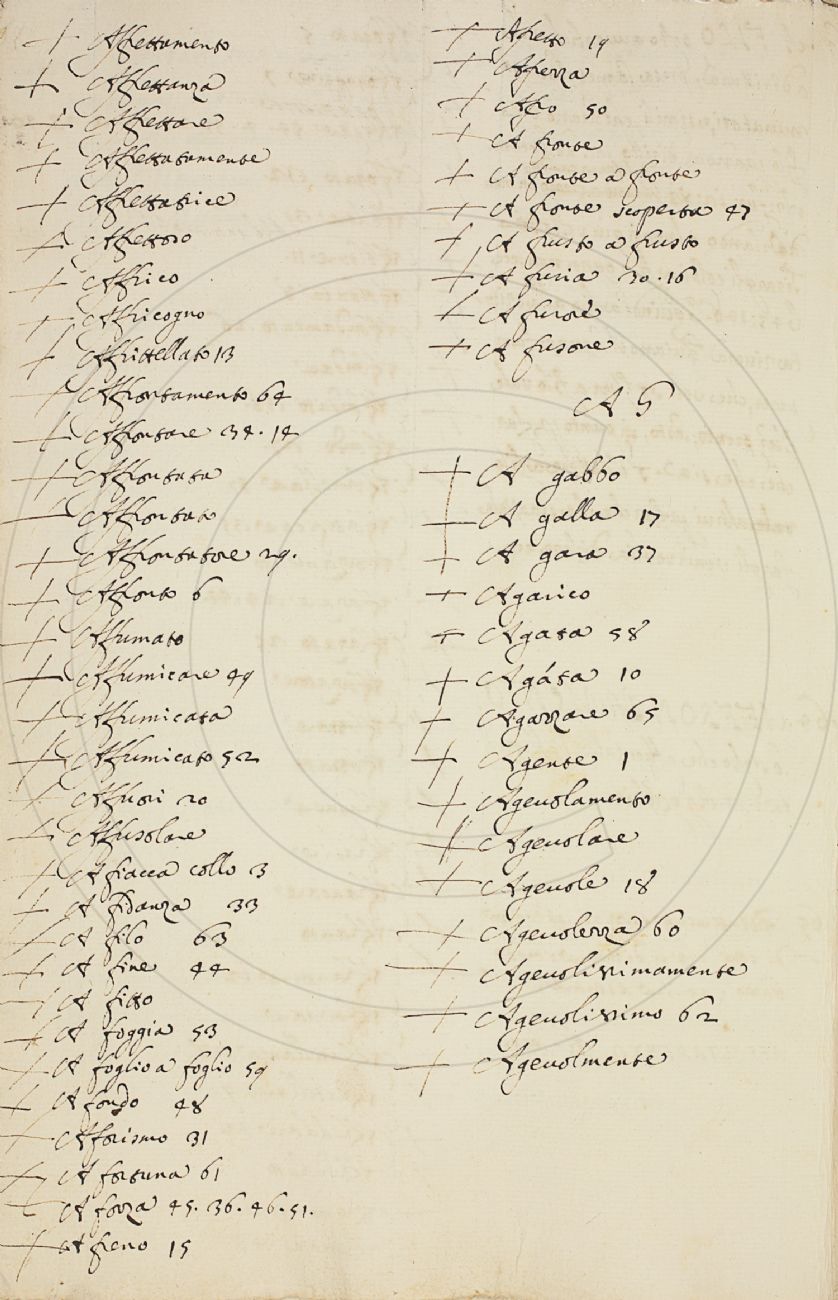 Affettamento
Affettanza
Affettare
Affettatamente
Affettatrice
Affettoso
Affrico
Affricogno
Affrittellato 13
Affrontamento 64
Affrontare 34. 14
Affrontata
Affrontato
Affrontatore 29.
Affronto 6
Affumato
Affumicare 49
Affumicata
Affumicato 52
Affuori 20
Affusolare
A fiacca collo 3
A fidanza 33
A filo 63
A fine 44
A fitto
A foggia 53
A foglio a foglio 59
A fondo 48
Aforismo 31
A fortuna 61
A forza 45. 36. 46. 51.
A freno 15
Afretto 19
A frezza
Afro 50
A fronte
A fronte a fronte
A fronte scoperta 47
A frusto a frusto
A furia 30. 16
A furore
A fusone
A G
A gabbo
A galla 17
A gara 37
Agarico
Agata 58
Agáta 10
Agazzare 65
Agente 1
Agevolamento
Agevolare
Agevole 18
Agevolezza 60
Agevolissimamente
Agevolissimo 62
Agevolmente